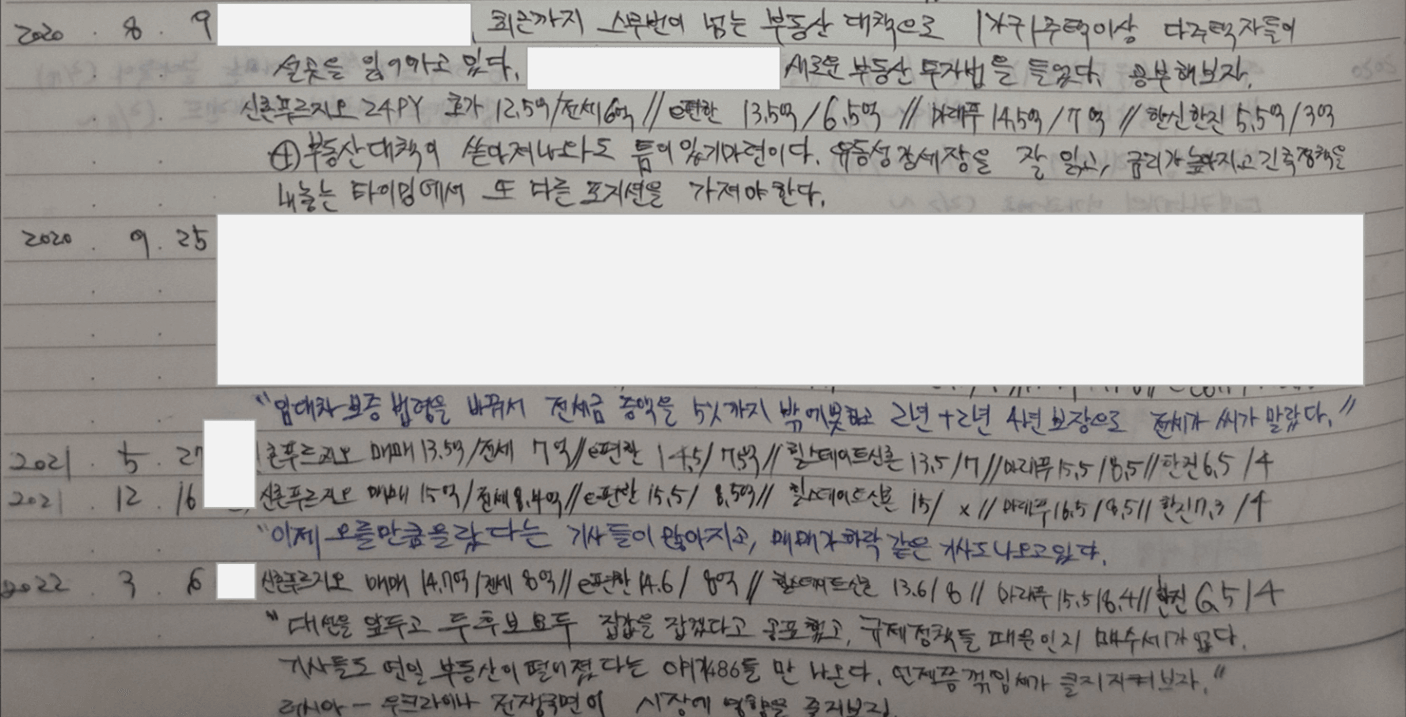 2020 . 8 . 9 , 최근까지 스무번이 넘는 부동산 대책으로 1가구1주택이상 다주택자들이
설곳을 잃어가고 있다. 새로운 부동산 투자법을 들었다. 공부해보자.
신촌푸르지오 24PY 호가 12.5억/전세6억 // e편한 13.5억/6.5억 // 마래푸 14.5억/7억 // 한신한진 5.5억/3억
⊕부동산대책이 쏟아져나와도 틈이 있게마련이다. 유동성강세장을 잘 읽고, 금리가높아지고긴축정책을
내놓는 타이밍에서 또 다른 포지션을 가져야한다.
2020 . 9 . 25
"임대차보증 법령을 바꿔서 전세금 증액을 5%까지 밖에못하고 2년+2년 4년 보장으로 전세가 씨가 말랐다."
2021 . 5 . 27 촌푸르지오 매매 13.5억/전세 7억//e편한 14.5/7.5억//힐스테이트신촌 13.5/7//마래푸15.5/8.5//한진6.5/4
2021 . 12 . 16 신촌푸르지오 매매 15억/전세8.4억//e편한 15.5/8.5억//힐스테이트신촌 15/ x//마래푸16.5/8.5//한진7.3/4
"이제 오를만큼올랐다는 기사들이 많아지고, 매매가하락 같은 기사도나오고있다.
2022 . 3 . 6 신촌푸르지오 매매 14.7억/전세 8억//e편한14.6/ 8억 // 힐스테이트신촌 13.6/8// 마래푸15.5/8.4//한진 6.5/4
"대선을 앞두고 두후보모두 집값을 잡겠다고 공포했고, 규제정책들 때문인지 매수세가 없다.
기사들도 연일 부동산이 떨어졌다는 만 나온다. 언제쯤 꺾임세가 클지지켜보자."
러시아 - 우크라이나 전쟁국면이 시장에 영향을 주지보자.